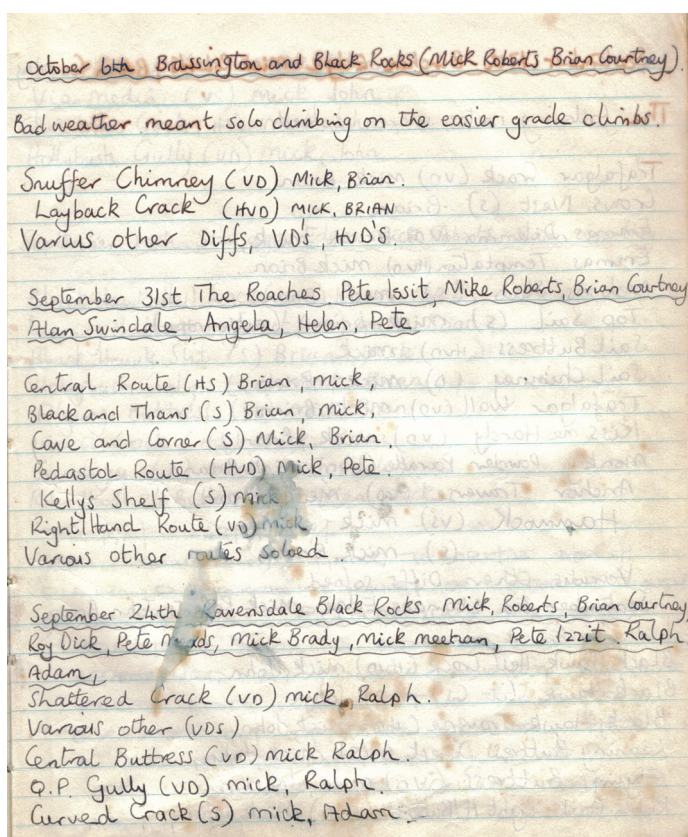 October 6th Brassington and Black Rocks (Mick Roberts-Brian Courtney).
Bad weather meant solo climbing on the easier grade climbs.
Snuffer Chimney (VD) Mick, Brian.
Layback Crack (HVD) MICK, BRIAN
Varius other Diffs, VD's, HVD'S.
September 31st The Roaches. Pete Issit, Mike Roberts, Brian Courtney
Alan Swindale, Angela, Helen, Pete
Central Route (HS) Brian, mick,
Black and Thans (S) Brian, mick,
Cave and Corner (S) Mick, Brian.
Pedastol Route (HVD) Mick, Pete.
Kellys Shelf (S) mick
Right Hand Route (VD) mick
Various other routes soloed.
September 24th Ravensdale Black Rocks Mick, Roberts, Brian Courtney,
Roy Dick, Pete Meads, Mick Brady, Mick meehan, Pete Izzit. Ralph
Adam,
Shattered Crack (VD) mick, Ralph.
Various other (VDs)
Central Buttress (VD) mick Ralph.
Q.P. Gully (VD) mick, Ralph.
Curved Crack (S) mick, Adam.